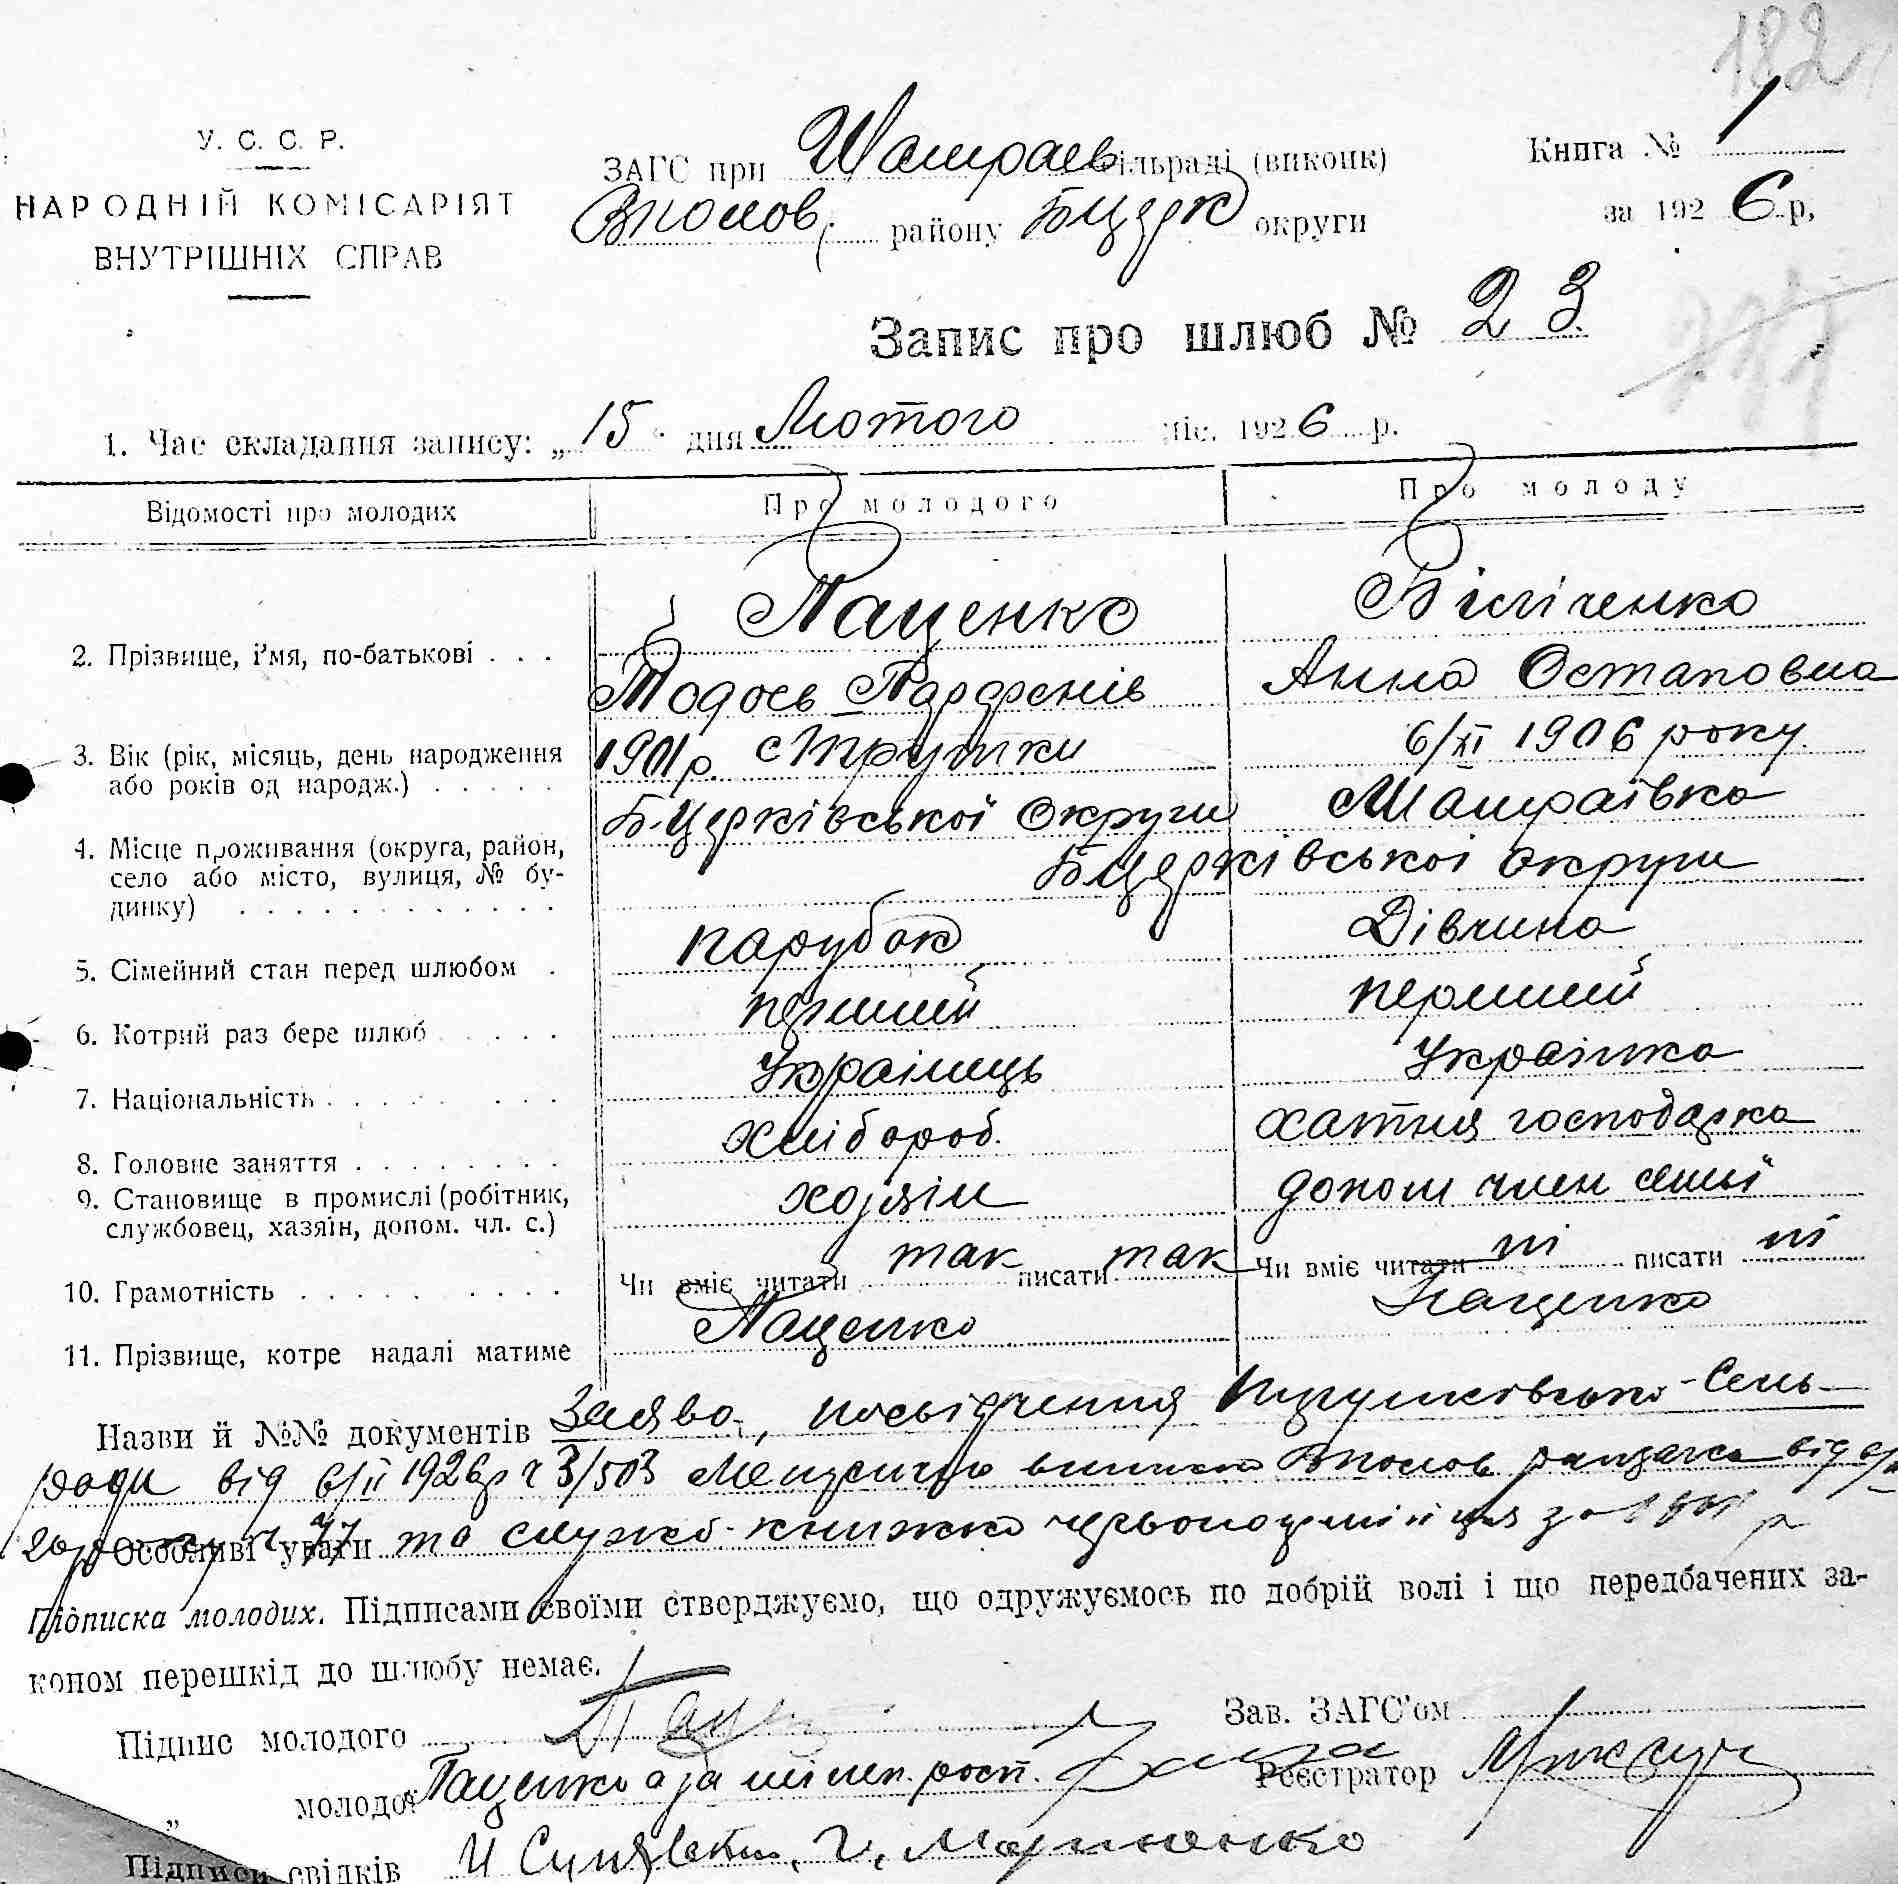 182
У. С. С. Р.
НАРОДНІЙ КОМІСАРІЯТ
ВНУТРІШНІХ СПРАВ
ЗАГС при Шамраев сільраді (виконк)
районy БЦерк округи
Книга № 1
за 1926 р,
Запис про шлюб № 23
1. Час складання запису: „15" дня Лютого міс. 1926 р.
Відомості про молодих Про молодого Про молоду
Паценко Біліченко
2. Прізвище, і'мя, по-батькові . . . Тодось Парфенів Анна Остаповна
3. Вік (рік, місяць, день народження або років од народж.) 1901 р. с Трушки 6/XI 1906 року.
Б.Церківської Округи Шамраївка
4. Місце проживання (округа, район, село або місто, вулиця, № будинку) БЦерківської округи
5. Сімейний стан перед шлюбом . парубок Дівчина
6. Котрий раз бере шлюб перший перший
7. Національність Українець Українка
8. Головне заняття хлібороб. хатня господарка
9. Становище в промислі (робітник, службовец, хазяїн, допом. чл. с.) хозяін допом член семьї
10. Грамотність Чи вміє читати так писати так Чи вміє читати ні писати ні
11. Прізвище, котре надалі матиме Паценко Паценко
Назви й №№ документів Заява, посвідчення Трушківсько Сель-
ради від 6/II 1926р ч 3/503 виписка від
26р ч 77 та служб. книжка за 1901 р
Особливі уваги
Підписка молодих. Підписами своїми стверджуємо, що одружуємось по добрій волі і що передбачених за-
коном перешкід до шлюбу немає.
Підпис молодого Зав. ЗАГС'ом
„ молодої Паценко а за росп. Реєстратор
Підписи свідків И Г. Мариненко